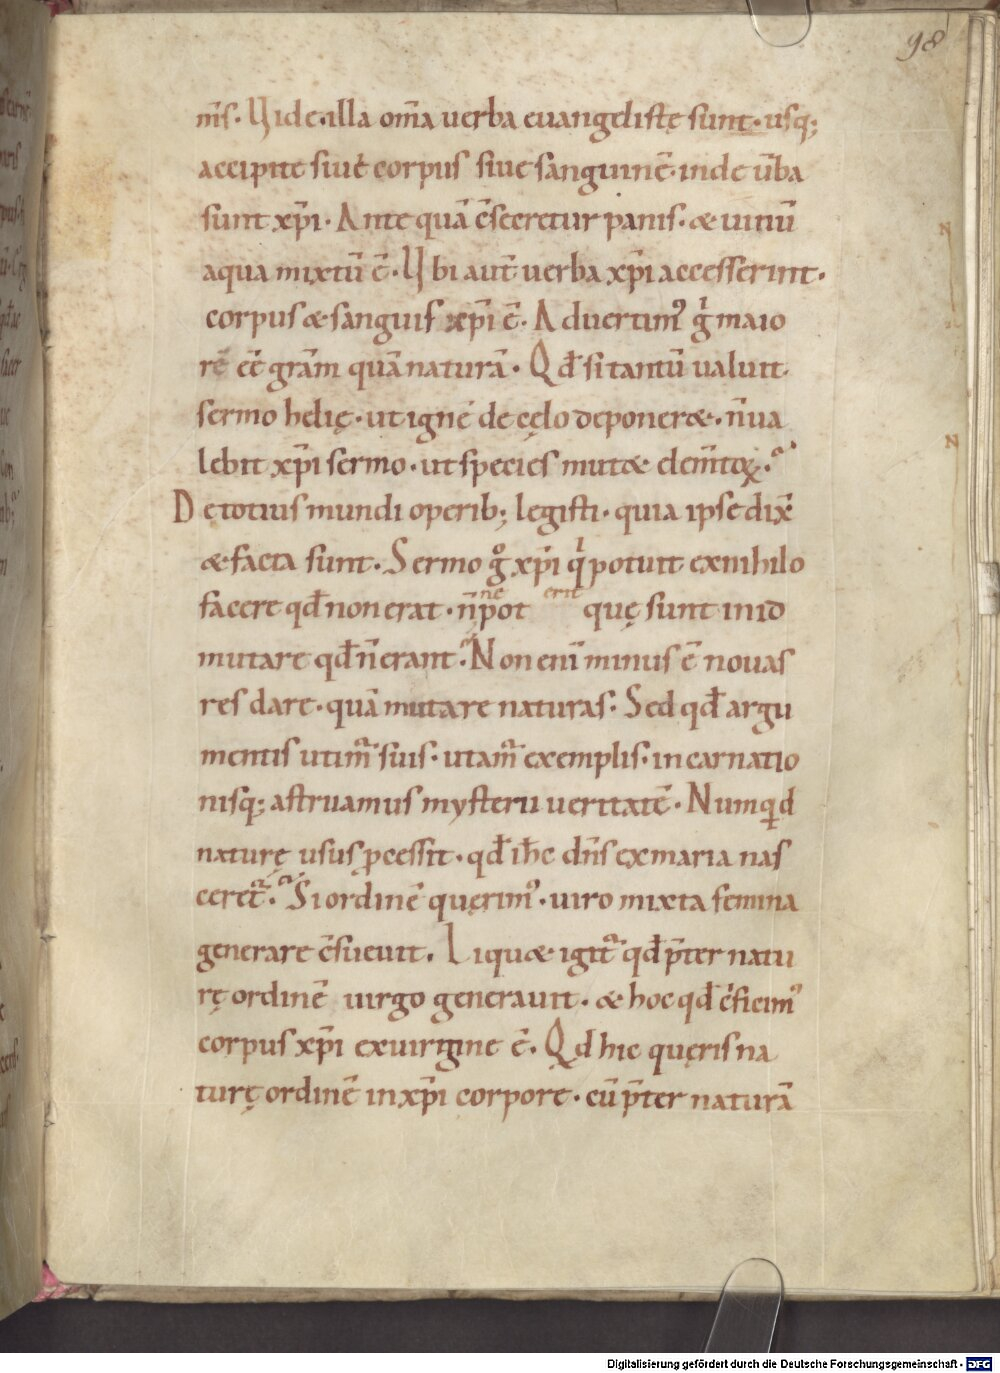 98
m̅s. Vide. illa om̅a uerba euangelistę sunt. usq;
accipite siue corpus siue sanguine̅. inde u̅ba
sunt xp̅i. Ante qua̅ c̅secretur panis. & uinu̅
aqua mixtu̅ e̅. Ubi aut̅ uerba xp̅i accesserint.
corpus & sanguis xp̅i e̅. Aduertim᾿ g̊ maio
re̅ e̅e̅ gra̅m qua̅ natura̅. Qd̅ si tantu̅ ualuit
sermo helię. ut igne̅ de cęlo deponer&. n̅ ua
lebit xp̅i sermo. ut species mut& elem̅toꝝ.
De totius mundi operib; legisti. quia ipse dix̅
& facta sunt. Sermo g̊ xp̅i q̍ potuit ex nihilo
facere qd̅ non erat. n̅ pot ne erit quę sunt in id
mutare qd̅ n̅ erant. Non eni̅ minus e̅ nouas
res dare. qua̅ mutare naturas. Sed qd̅ argu
mentis utim̅ suis. utam̅ exemplis. incarnatio
nisq; astruamus mysterii ueritate̅. Numqͥd
naturę usus p̱cessit. qd̅ ih̅c dn̅s ex maria nas
ceret̅. Si ordine̅ quęrim᾿. uiro mixta femina
generare c̅sueuit. Liqu& igit̅ qd̅ p̅ter natu
rę ordine̅ uirgo generauit. & hoc qd̅ c̅ficim᾿
corpus xp̅i ex uirgine e̅. Qd hic quęris na
turę ordine̅ in xp̅i corpore. cu̅ p̅ter natura̅
Digitalisierung gefördert durch die Deutsche Forschungsgemeinschaft - DFG